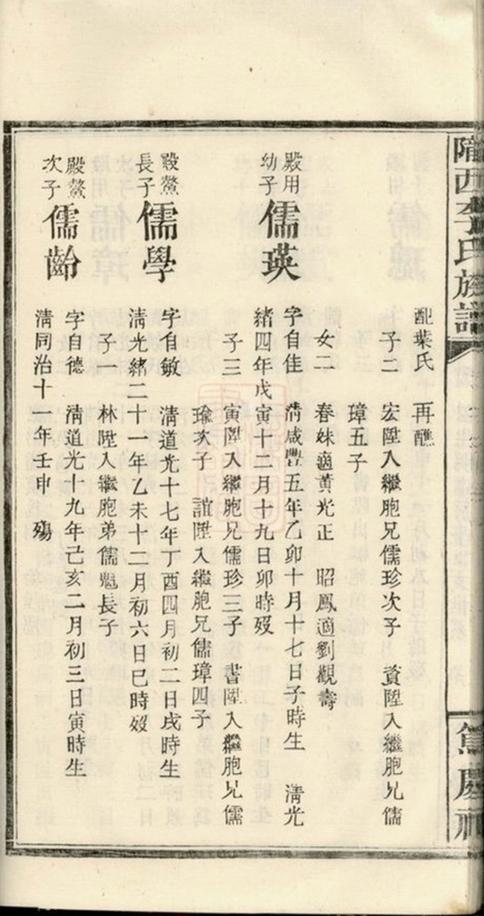 隴西李氏族譜
配葉氏 再醮
子二 宏陞入繼胞兄儒珍次子 賓陞入繼胞兄儒
璋五子
女二 春妹適黃光正 昭鳳適劉觀壽
殿用
幼子
儒瑛
字自佳 清咸豐五年乙卯十月十七日子時生 清光
緒四年戊寅十二月十九日卯時歿
子三 寅陞入繼胞兄儒珍三子 書陞入繼胞兄儒
瑜次子 誼陞入繼胞兄儒璋四子
殿鰲
長子
儒學
字自敏 清道光十七年丁酉四月初二日戌時生
清光緒二十一年乙未十二月初六日巳時歿
子一 林陞入繼胞弟儒魁長子
殿鰲
次子
儒齡
字自德 清道光十九年己亥二月初三日寅時生
清同治十一年壬申 殤